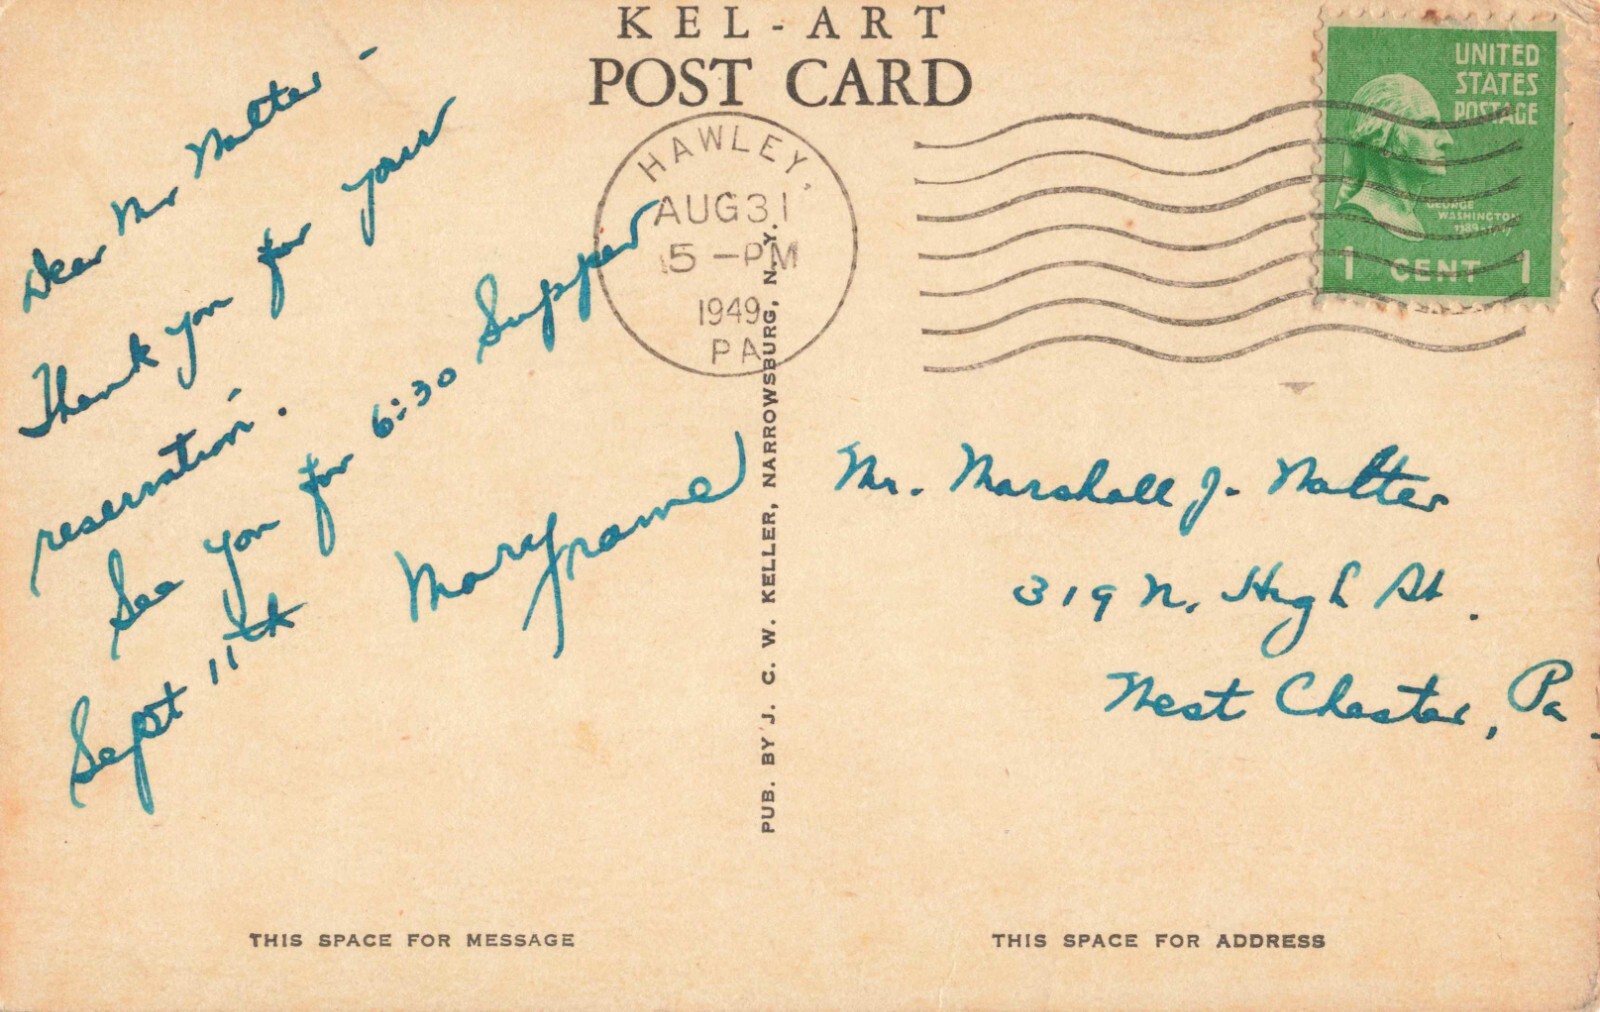 KEL-ART
POST CARD
Dear Mr Walter -
Thank you for your
reservation.
See you for 6:30 Supper
Sept 11th
HAWLEY,
AUG 31
5 - PM
1949
PA
UNITED
STATES
POSTAGE
GEORGE
WASHINGTON
1789-1797
1 CENT 1
PUB. BY J. C. W. KELLER, NARROWSBURG, N. Y.
Mr. Marshall J. Walter
319 N. High St.
West Chester, Pa.
THIS SPACE FOR MESSAGE
THIS SPACE FOR ADDRESS